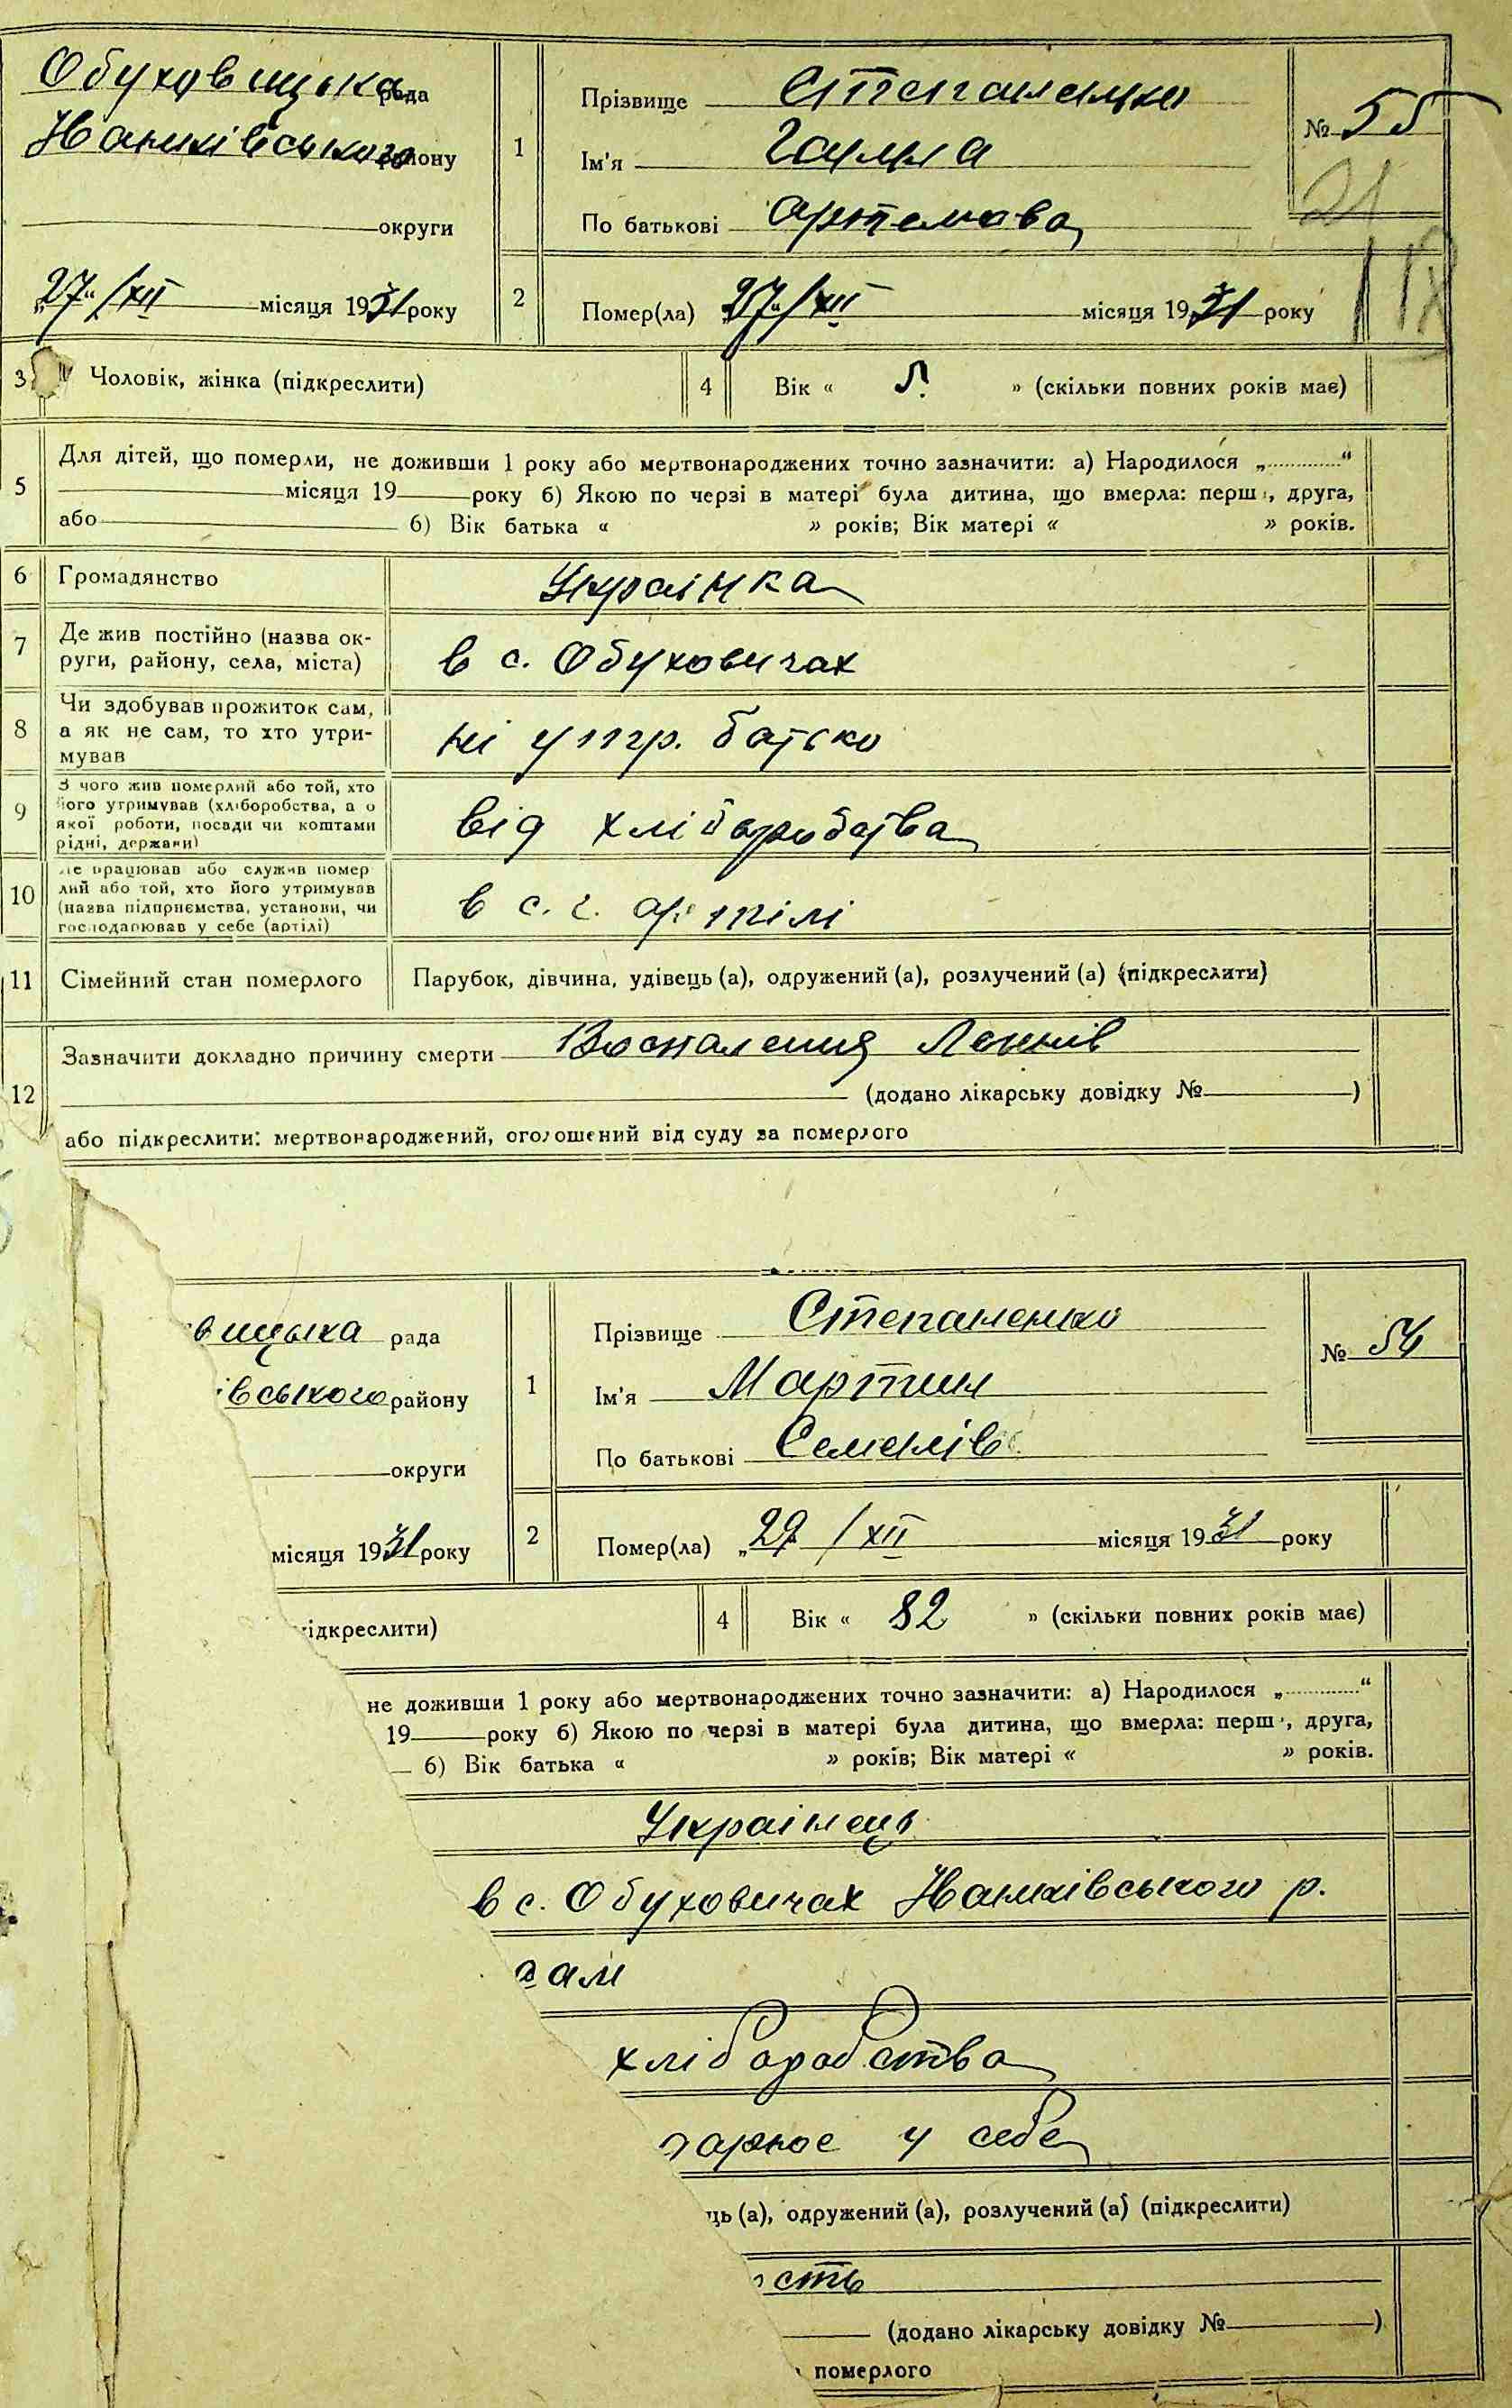 Обуховицька рада
Іванківського району
округи
„27“/XII місяця 1931 року
1
Прізвище Степаненко
Ім'я Ганна
По батькові Артемова
№ 55
21
2
Помер(ла) „27“/XII місяця 1931 року
3
Чоловік, жінка (підкреслити)
4
Вік « 5 » (скільки повних років має)
5
Для дітей, що померли, не доживши 1 року або мертвонароджених точно зазначити: а) Народилося „............“
місяця 19 року б) Якою по черзі в матері була дитина, що вмерла: перша, друга,
або б) Вік батька « » років; Вік матері « » років.
6
Громадянство
Українка
7
Де жив постійно (назва ок-
руги, району, села, міста)
в с. Обуховичах
8
Чи здобував прожиток сам,
а як не сам, то хто утри-
мував
ні утр. батько
9
З чого жив померлий або той, хто
його утримував (хліборобства, а о
якої роботи, посади чи коштами
рідні, держави)
від хліборобства
10
Де працював або служив помер
лий або той, хто його утримував
(назва підприємства, установи, чи
господарював у себе (артілі)
в с. г. артілі
11
Сімейний стан померлого
Парубок, дівчина, удівець (а), одружений (а), розлучений (а) (підкреслити)
12
Зазначити докладно причину смерти Воспаления Легнів
(додано лікарську довідку № )
або підкреслити: мертвонароджений, оголошений від суду за померлого
вицька рада
івського району
округи
місяця 1931 року
1
Прізвище Степаненко
Ім'я Мартин
По батькові Семенів
№ 54
2
Помер(ла) „27 /XII місяця 1931 року
підкреслити)
4
Вік « 82 » (скільки повних років має)
не доживши 1 року або мертвонароджених точно зазначити: а) Народилося „............“
19 року б) Якою по черзі в матері була дитина, що вмерла: перша, друга,
б) Вік батька « » років; Вік матері « » років.
Українець
в с. Обуховичах Іванківського р.
сам
хліборобства
дарює у себе
ць (а), одружений (а), розлучений (а) (підкреслити)
сть
(додано лікарську довідку № )
померлого